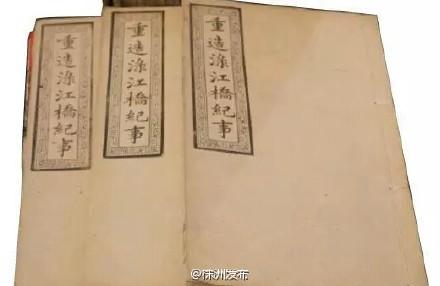 重造渌江橋紀事
重造渌江橋紀事
重造渌江橋紀事
@株洲发布